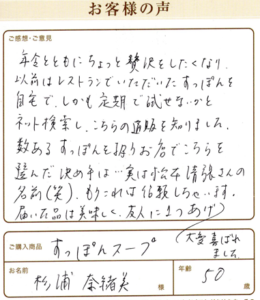 お客様の声
ご感想・ご意見
年令とともにちょっと贅沢をしたくなり、
以前はレストランでいただいたすっぽんを
自宅で、しかも定期で試せないかと
ネット検索し、こちらの通販を知りました。
数あるすっぽんを扱うお店でこちらを
選んだ決め手は…実は松本清張さんの
名前(笑)。もうこれは信頼しちゃいます。
届いた品は美味しく、友人にまつあげ
(大変喜ばれ
ました。
ご購入商品
すっぽんスープ
お名前
杉浦 奈緒美 様
年齢
50 歳